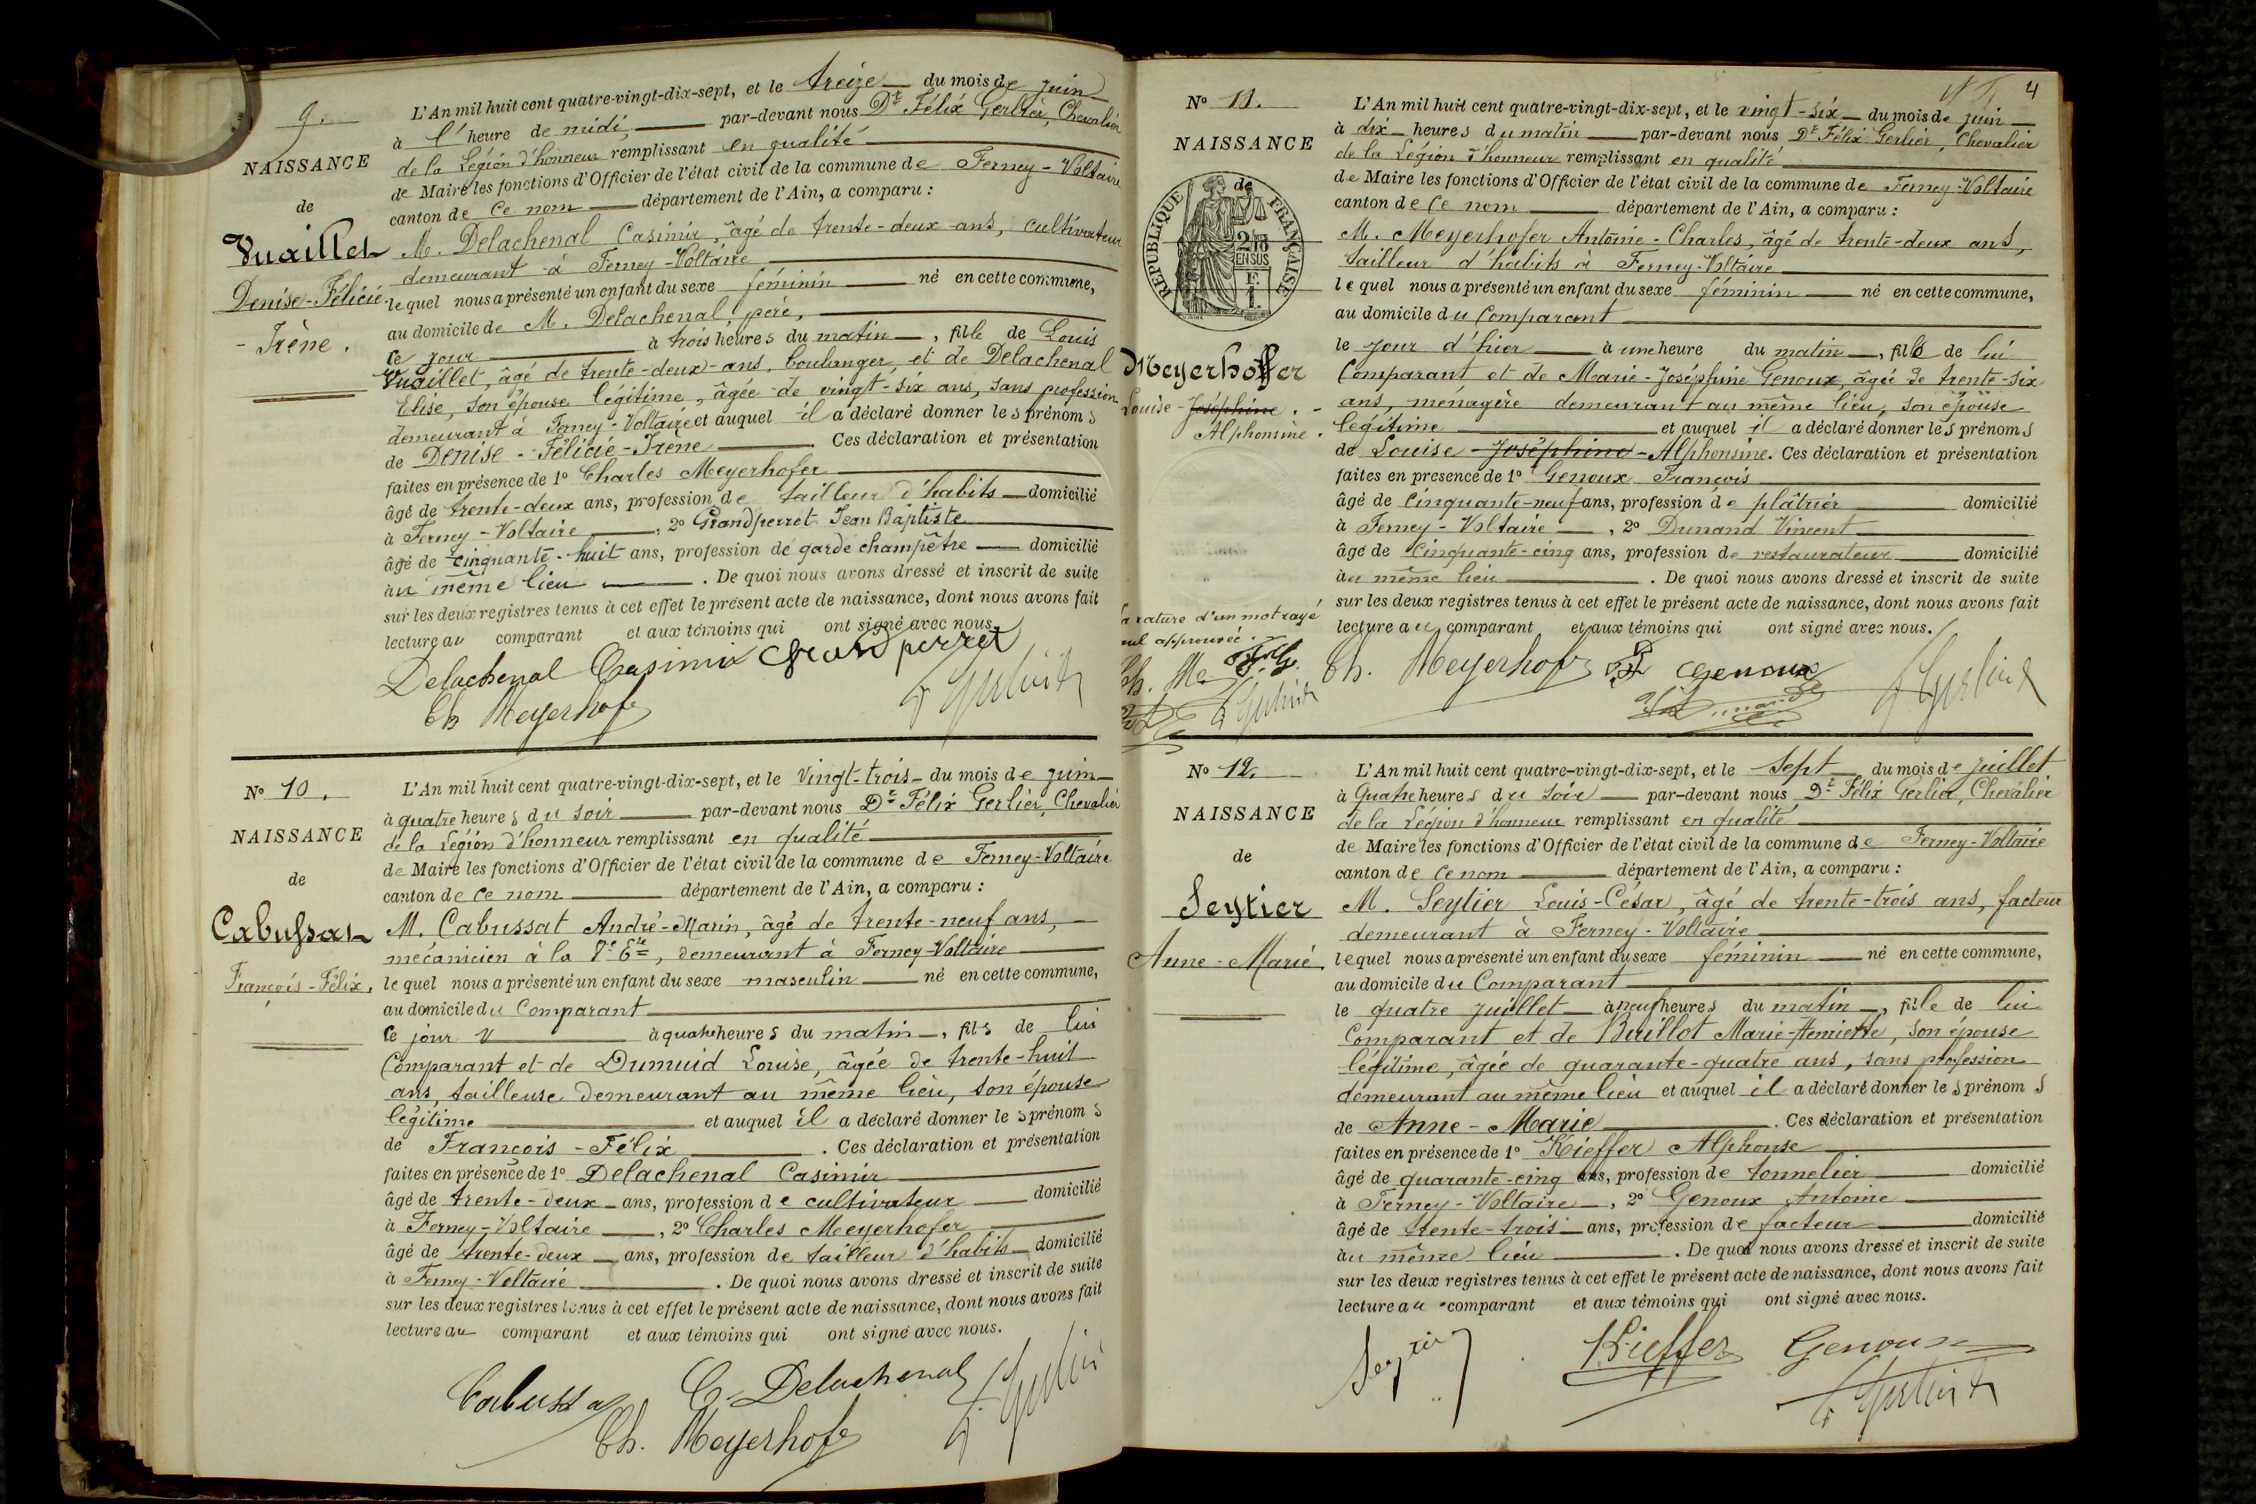 9.
NAISSANCE
de
Vuaillet
Denise-Félicie
- Irène.
L'An mil huit cent quatre-vingt-dix-sept, et le treize du mois de juin
à l'heure de midi, par-devant nous Dr Félix Gerlier, Chevalier
de la Légion d'honneur remplissant en qualité
de Maire les fonctions d'Officier de l'état civil de la commune de Ferney-Voltaire
canton de ce nom département de l'Ain, a comparu :
M. Delachenal Casimir, âgé de trente-deux ans, cultivateur
demeurant à Ferney-Voltaire
lequel nous a présenté un enfant du sexe féminin né en cette commune,
au domicile de M. Delachenal, père,
ce jour à trois heures du matin, fille de Louis
Vuaillet, âgé de trente-deux-ans, boulanger, et de Delachenal
Elise, son épouse légitime, âgée de vingt-six ans, sans profession
demeurant à Ferney-Voltaire et auquel il a déclaré donner les prénoms
de Denise-Félicie-Irène. Ces déclaration et présentation
faites en présence de 1º Charles Meyerhofer
âgé de trente-deux ans, profession de tailleur d'habits domicilié
à Ferney-Voltaire, 2º Grandperret Jean Baptiste
âgé de cinquante-huit ans, profession de garde champêtre domicilié
au même lieu. De quoi nous avons dressé et inscrit de suite
sur les deux registres tenus à cet effet le présent acte de naissance, dont nous avons fait
lecture au comparant et aux témoins qui ont signé avec nous.
Delachenal Casimir Grandperret
Ch Meyerhofer F Gerlier
Nº 10.
NAISSANCE
de
Cabussat
François-Félix,
L'An mil huit cent quatre-vingt-dix-sept, et le vingt-trois du mois de juin
à quatre heures du soir par-devant nous Dr Félix Gerlier, Chevalier
de la Légion d'honneur remplissant en qualité
de Maire les fonctions d'Officier de l'état civil de la commune de Ferney-Voltaire
canton de ce nom département de l'Ain, a comparu :
M. Cabussat André-Marin, âgé de trente-neuf ans,
mécanicien à la Vé Eté, demeurant à Ferney-Voltaire
lequel nous a présenté un enfant du sexe masculin né en cette commune,
au domicile du Comparant
ce jour à quatre heures du matin, fils de lui
Comparant et de Dumuid Louise, âgée de trente-huit
ans, tailleuse demeurant au même lieu, son épouse
légitime et auquel il a déclaré donner les prénoms
de François-Félix. Ces déclaration et présentation
faites en présence de 1º Delachenal Casimir
âgé de trente-deux ans, profession de cultivateur domicilié
à Ferney-Voltaire, 2º Charles Meyerhofer
âgé de trente-deux ans, profession de tailleur d'habits domicilié
à Ferney-Voltaire. De quoi nous avons dressé et inscrit de suite
sur les deux registres tenus à cet effet le présent acte de naissance, dont nous avons fait
lecture au comparant et aux témoins qui ont signé avec nous.
Cabussat C. Delachenal F. Gerlier
Ch. Meyerhofer
4
Nº 11.
NAISSANCE
de
RÉPUBLIQUE FRANÇAISE
2/10
EN SUS
Meyerhoffer
Louise-Joséphine.-
Alphonsine.
L'An mil huit cent quatre-vingt-dix-sept, et le vingt-six du mois de juin
à dix heures du matin par-devant nous Dr Félix Gerlier, Chevalier
de la Légion d'honneur remplissant en qualité
de Maire les fonctions d'Officier de l'état civil de la commune de Ferney-Voltaire
canton de ce nom département de l'Ain, a comparu :
M. Meyerhofer Antoine-Charles, âgé de trente-deux ans,
tailleur d'habits à Ferney-Voltaire
lequel nous a présenté un enfant du sexe féminin né en cette commune,
au domicile du Comparant
le jour d'hier à une heure du matin, fille de lui
Comparant et de Marie-Joséphine Genoux, âgée de trente-six
ans, ménagère demeurant au même lieu, son épouse
légitime et auquel il a déclaré donner les prénoms
de Louise Joséphine-Alphonsine. Ces déclaration et présentation
faites en présence de 1º Genoux François
âgé de cinquante-neuf ans, profession de plâtrier domicilié
à Ferney-Voltaire, 2º Dunand Vincent
âgé de cinquante-cinq ans, profession de restaurateur domicilié
au même lieu. De quoi nous avons dressé et inscrit de suite
sur les deux registres tenus à cet effet le présent acte de naissance, dont nous avons fait
lecture au comparant et aux témoins qui ont signé avec nous.
La rature d'un mot rayé
nul approuvée.
Ch. Me F.G.
F Gerlier
Ch. Meyerhofer Genoux F Gerlier
Dunand
Nº 12.
NAISSANCE
de
Seytier
Anne-Marie,
L'An mil huit cent quatre-vingt-dix-sept, et le sept du mois de juillet
à quatre heures du soir par-devant nous Dr Félix Gerlier, Chevalier
de la Légion d'honneur remplissant en qualité
de Maire les fonctions d'Officier de l'état civil de la commune de Ferney-Voltaire
canton de ce nom département de l'Ain, a comparu :
M. Seytier Louis-César, âgé de trente-trois ans, facteur
demeurant à Ferney-Voltaire
lequel nous a présenté un enfant du sexe féminin né en cette commune,
au domicile du Comparant
le quatre juillet à neuf heures du matin, fille de lui
Comparant et de Buillot Marie-Henriette, son épouse
légitime, âgée de quarante-quatre ans, sans profession
demeurant au même lieu et auquel il a déclaré donner les prénoms
de Anne-Marie. Ces déclaration et présentation
faites en présence de 1º Kieffer Alphonse
âgé de quarante-cinq ans, profession de tonnelier domicilié
à Ferney-Voltaire, 2º Genoux Antoine
âgé de trente-trois ans, profession de facteur domicilié
au même lieu. De quoi nous avons dressé et inscrit de suite
sur les deux registres tenus à cet effet le présent acte de naissance, dont nous avons fait
lecture au comparant et aux témoins qui ont signé avec nous.
Seytier Kieffer Genoux
F Gerlier